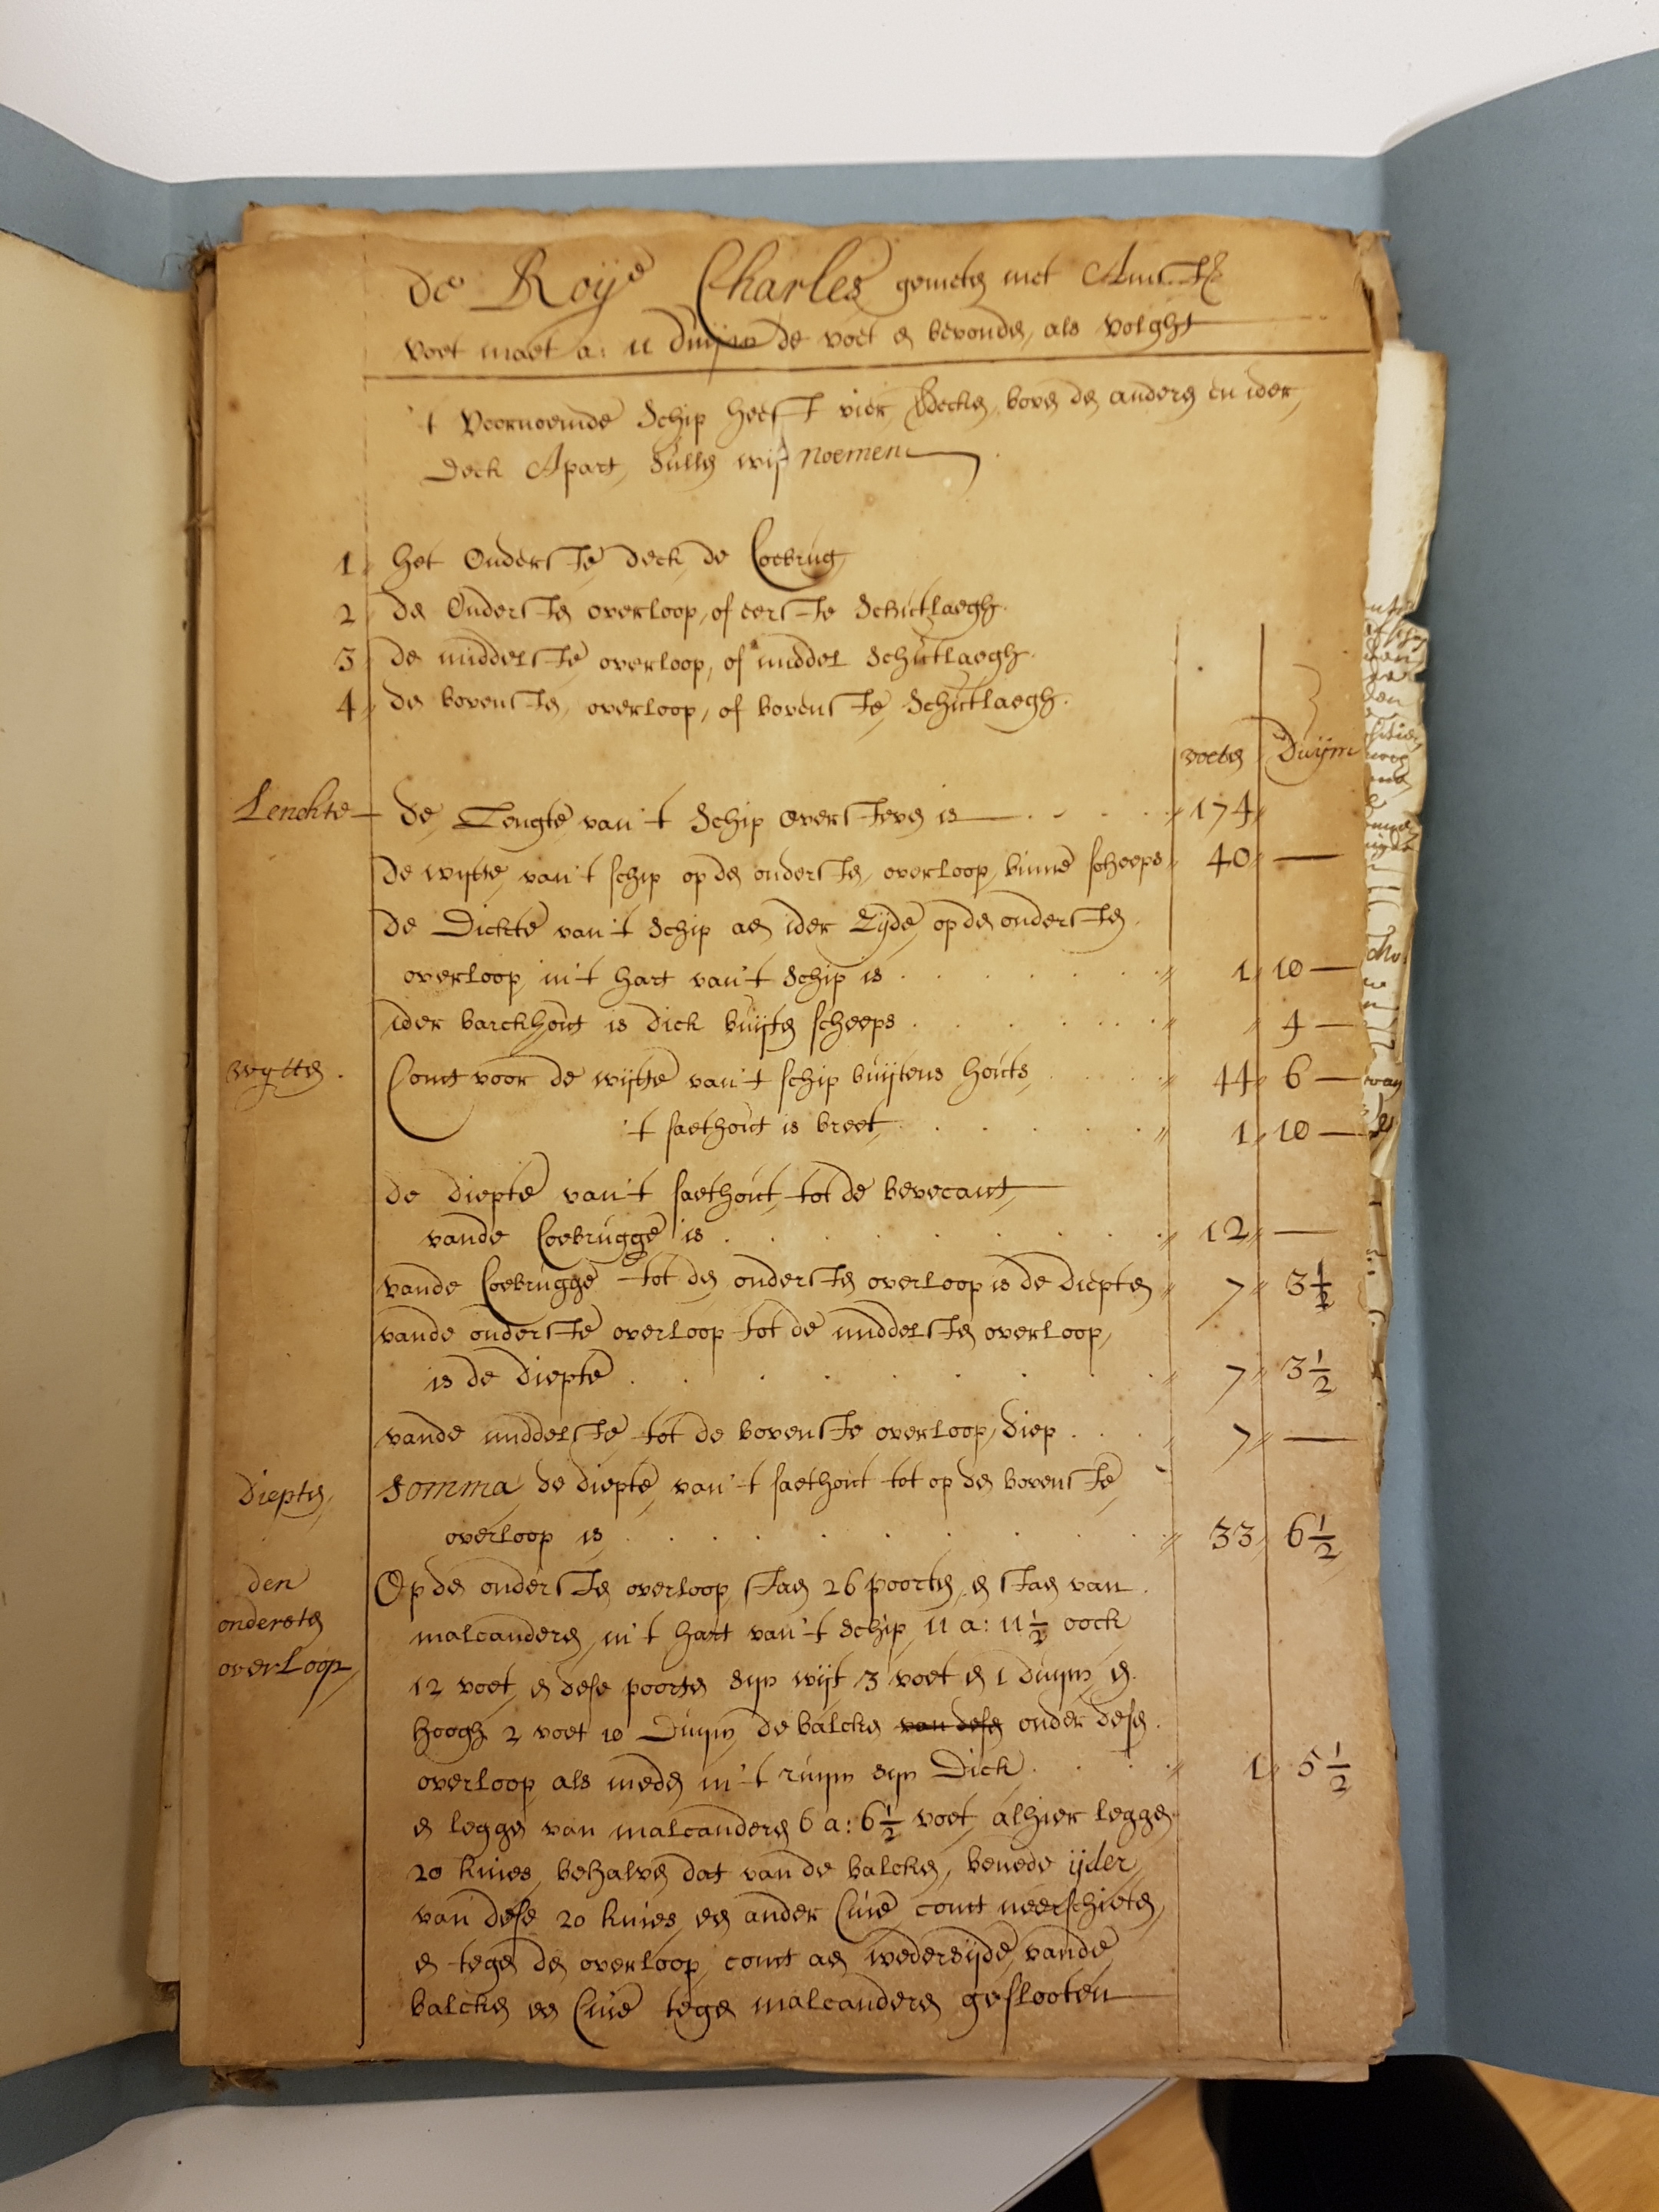 de Roije Charles gemeten met Amst.
voet maet a: 11 duijm de voet en bevonden, als volght
't Voornoemde Schip heeft vier decken, boven den anderen en ider
deck Apart, sullen wij noemen
1 het Onderste deck de Coebrug
2 den Ondersten overloop, of eerste Schutlaegh.
3 de middelste overloop, of middel Schutlaegh.
4 den bovensten overloop, of bovenste Schutlaegh.
voeten Duijm
Lenckte de Lengte van 't Schip over Steven is 174
de wijtte van 't schip op den ondersten overloop binne scheeps 40 —
de Dickte van 't Schip aen ider Zijde op den ondersten
overloop in 't hart van 't Schip is 1 10 —
ider barckhout is dick buijten scheeps 4 —
wytten. Comt voor de wijtte van 't schip buijtens houts 44 6 —
't saethout is breet 1 10 —
de diepte van 't saethout tot de bevecant
vande Coebrugge is 12 —
vande Coebrugge tot den ondersten overloop is de diepten 7 3 1/2
vande onderste overloop tot de middelsten overloop,
is de diepte 7 3 1/2
vande middelste tot de bovenste overloop, diep 7 —
diepten Somma de diepte van 't saethout tot op den bovenste
overloop is 33 6 1/2
den Op den ondersten overloop staen 26 poorten en staen van
ondersten malcanderen in 't hart van 't Schip 11 a: 11 1/2 oock
overloop 12 voet en dese poorten syn wijt 3 voet en 1 duijm en
hoogh 2 voet 10 Duijm de balcken van desen onder desen
overloop als meden in 't ruijm syn Dick 1 5 1/2
en leggen van malcanderen 6 a: 6 1/2 voet, alhier leggen
20 knies, behalven dat van de balcken, benede ijder
van dese 20 knies een ander Cnie comt neerschieten,
en tegen den overloop comt aen wedersijde vande
balcken een Cnie tegen malcanderen geslooten